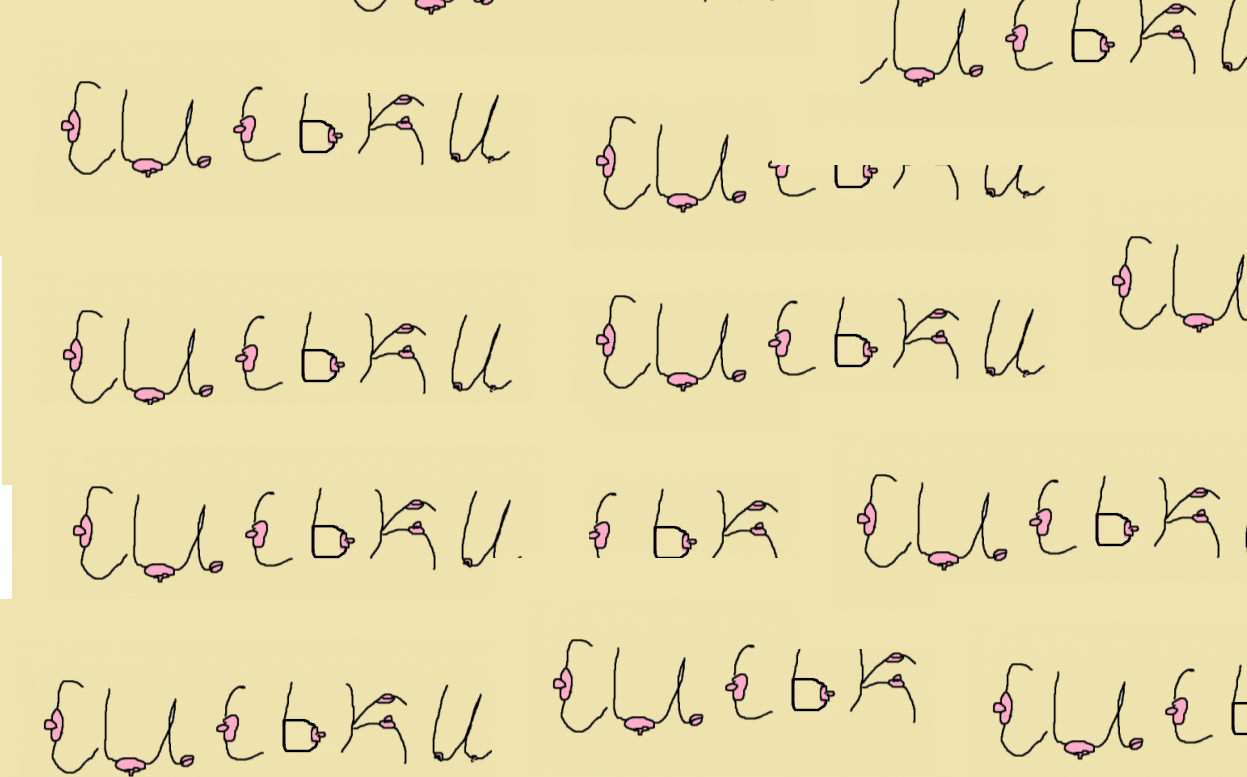 иськи
Сиськи
Сиськи
Си
Сиськи Сиськи
Сиськи ськ Сиськ
Сиськи Сиськ Сись